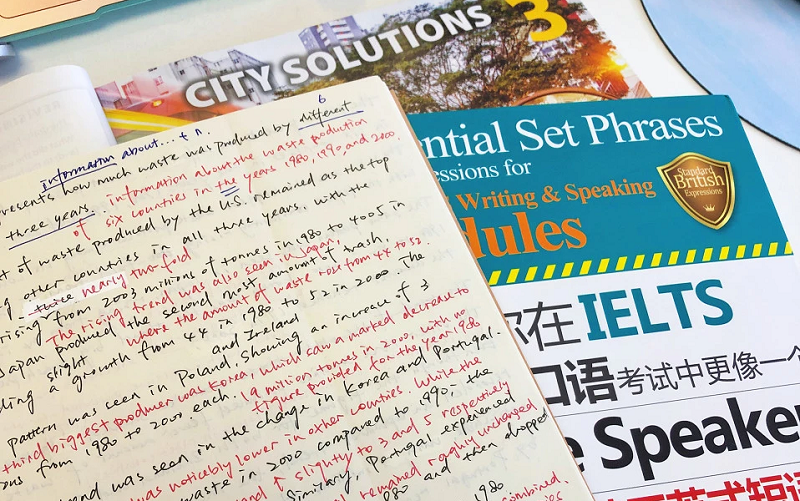 CITY SOLUTIONS 3
6
information about... + n.
presents how much waste was produced by different
information about the waste production
three years. of six countries in the years 1980, 1990, and 2000
of waste produced by the U.S. remained as the top
other countries in all three years, with the
three nearly two fold
rising from 2003 millions of tonnes in 1980 to 4005 in
The rising trend was also seen in Japan,
Japan produced the second most amount of trash,
where the amount of waste rose from 44 to 52
a growth from 44 in 1980 to 52 in 2000. The
slight and Ireland
pattern was seen in Poland, showing an increase of 3
third biggest producer was Korea, which saw a marked decrease to
from 1980 to 2000 each. 19 million tonnes in 2000, with no
figure provided for the year 1980
was seen in the change in Korea and Portugal.
was noticebly lower in other counties. While the
waste in 2000 compared to 1990, the
↑ slightly to 3 and 5 respectively
Similarly, Portugal experienced
remained roughly unchanged
1980 and then dropped
1980
combined.
ential Set Phrases
essions for
Writing & Speaking
dules
Standard
British
Expressions
你在IELTS
口语考试中更像一个
e Speake